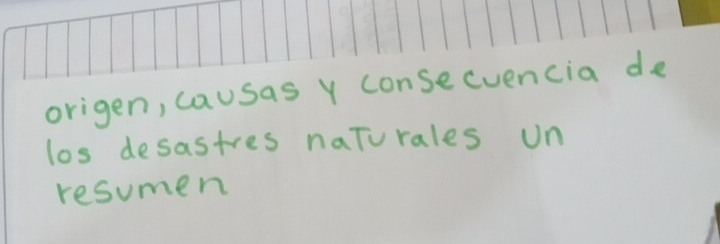 origen, causas y consecuencia de
los desastres naturales un
resumen